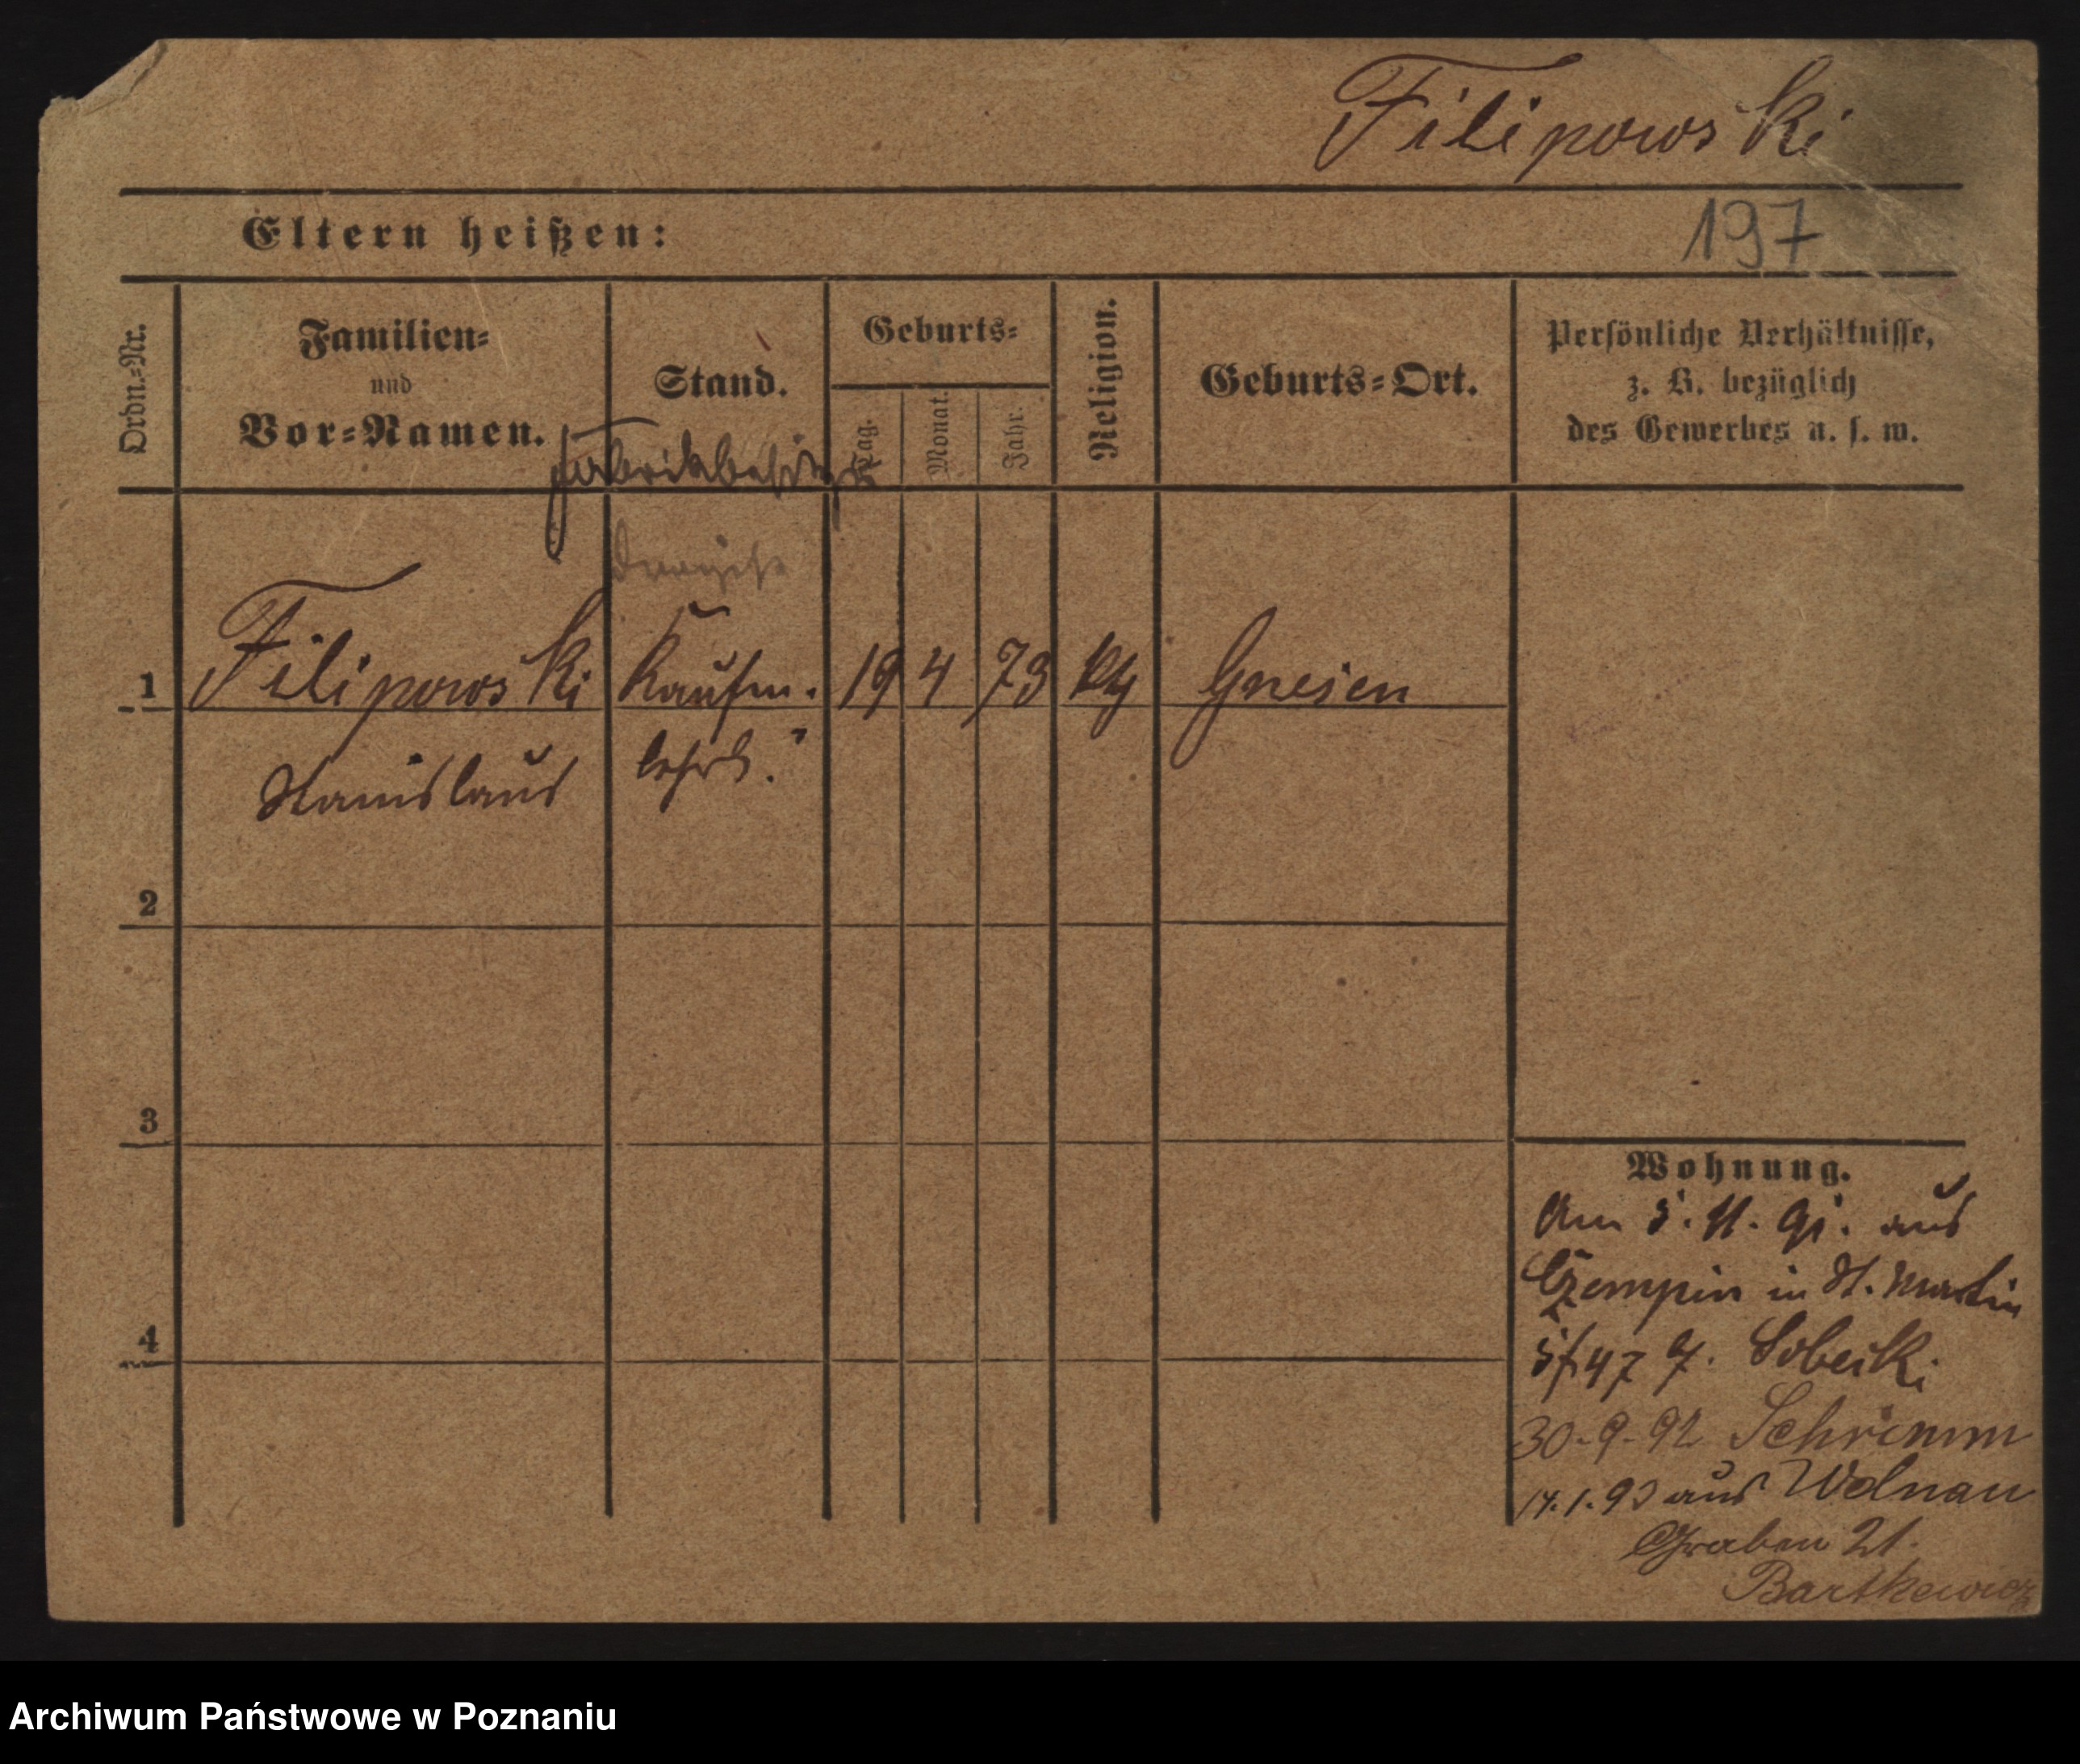 Filipowski
Eltern heißen:
197
Ordn.=Nr.
Familien=
und
Vor=Namen.
Stand.
Geburts=
Tag.
Monat.
Jahr.
Religion.
Geburts=Ort.
Persönliche Verhältnisse,
z. B. bezüglich
des Gewerbes u. s. w.
Fabrikbesitzer
1 Filipowski Kaufm. 19 4 73 kth Gnesen
Stanislaus lehrl.
2
3
4
Wohnung.
Am 5. 11. 91. aus
Czempin in St. Martin
47 Sobecki
30-9-92 Schrimm
14.1.93 aus Wolnau
Graben 21.
Bartkewicz
Archiwum Państwowe w Poznaniu